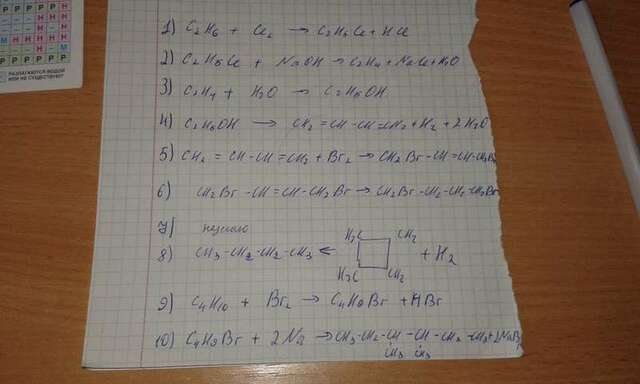 Р Р Р Р Р
Р Р
Н
Н М
РАЗЛАГАЮТСЯ ВОДОЙ
ИЛИ НЕ СУЩЕСТВУЮТ
1) C2H6 + Cl2 → C2H5Cl + HCl
2) C2H5Cl + NaOH → C2H4 + NaCl + H2O
3) C2H4 + H2O → C2H5OH
4) C2H5OH → CH2=CH-CH=CH2 + H2 + 2H2O
5) CH2=CH-CH=CH2 + Br2 → CH2Br-CH=CH-CH2Br
6) CH2Br-CH=CH-CH2Br → CH2Br-CH2-CH2-CH2Br
7)
8) CH3-CH2-CH2-CH3 ← H2C CH2 H2C CH2 + H2
9) C4H10 + Br2 → C4H9Br + HBr
10) C4H9Br + 2Na → CH3-CH2-CH-CH-CH2-CH3 + 2NaBr
CH3 CH3